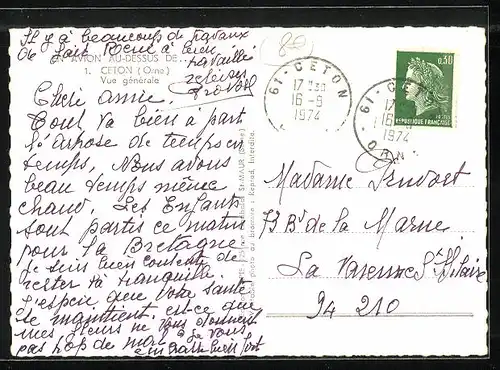 Il y a beaucoup de travaux
de fait
EN AVION AU-DESSUS DE...
travaillé
1. CETON (Orne)
Vue générale
Chère amie.
Tout va bien à part
temps en
temps. Nous avons
beau temps même
chaud. Les Enfants
sont partis ce matin
pour la Bretagne
je suis bien contente de
rester là tranquille.
J'espère que votre santé
se maintient, est-ce que
mes fleurs ne vous donnent
pas trop de mal je vous
embrasse bien fort
80
61 - CETON
17H30
16-9
1974
0,30
REPUBLIQUE FRANÇAISE
61 - CETON
17
16-9
1974
ORNE
Madame
73 Bd de la Marne
La Varenne St Hilaire
94 210